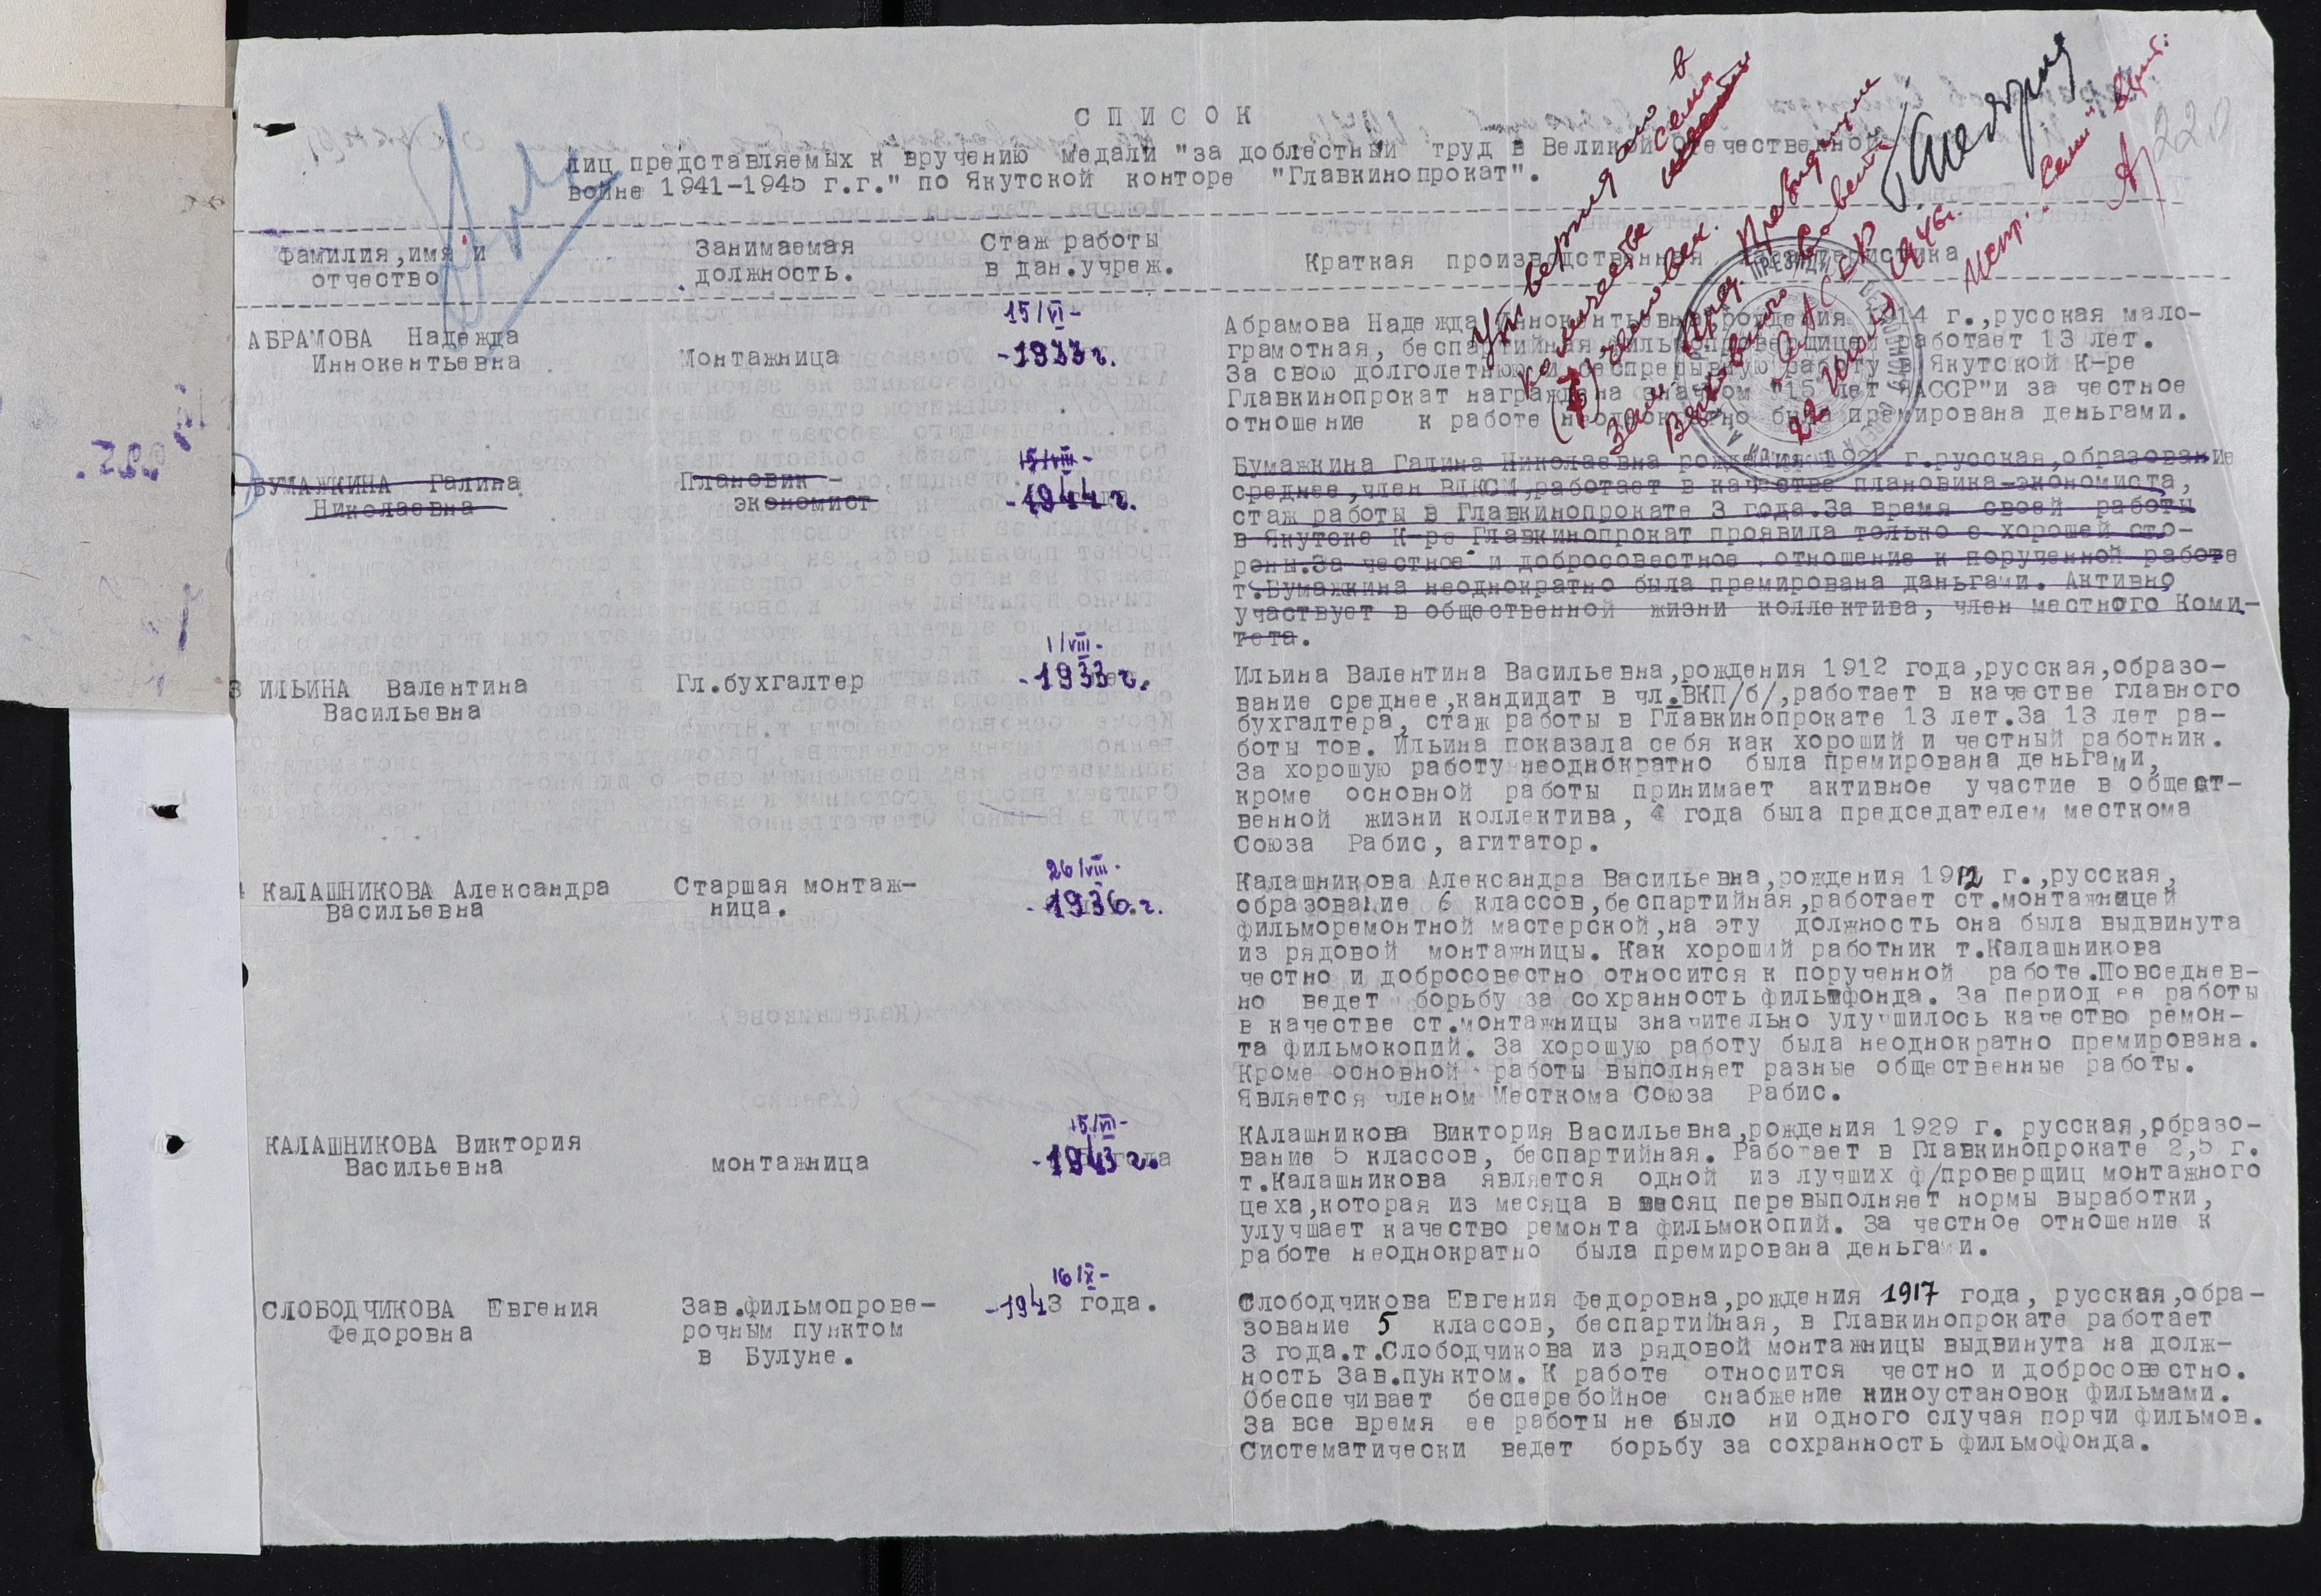 СПИСОК
лиц представляемых к вручению медали "за доблестный труд в Великой Отечественной
войне 1941-1945 г.г." по Якутской конторе "Главкинопрокат".
Утверждаю в
количестве семи
(7) человек.
Зам. Пред. Президиума
Верховного Совета
ЯАССР
22 1946г.
Испр. "семи" верно:
220
Фамилия,имя и
отчество
Занимаемая
должность.
Стаж работы
в дан.учреж.
Краткая производственная характеристика
АБРАМОВА Надежда
Иннокентьевна
Монтажница
15/VI-
-1933г.
Абрамова Надежда Иннокентьевна рождения 1914 г.,русская мало-
грамотная, беспартийная, фильмопроверщицей работает 13 лет.
За свою долголетнюю и беспредывную работу в Якутской К-ре
Главкинопрокат награждена значком "15 лет ЯАССР"и за честное
отношение к работе неоднократно была премирована деньгами.
БУМАЖКИНА Галина
Николаевна
Плановик -
экономист
15/VIII-
-1944г.
Бумажкина Галина Николаевна рождения 1921 г.русская,образование
среднее,член ВЛКСМ,работает в качестве плановика-экономиста,
стаж работы в Главкинопрокате 3 года.За время своей работы
в Якутске К-ре Главкинопрокат проявила только с хорошей сто-
роны.За честное и добросовестное отношение к порученной работе
т.Бумажкина неоднократно была премирована даньгами. Активно
участвует в общественной жизни коллектива, член местного Коми-
тета.
3 ИЛЬИНА Валентина
Васильевна
Гл.бухгалтер
1/VIII-
-1933г.
Ильина Валентина Васильевна,рождения 1912 года,русская,образо-
вание среднее,кандидат в чл.ВКП/б/,работает в качестве главного
бухгалтера, стаж работы в Главкинопрокате 13 лет.За 13 лет ра-
боты тов. Ильина показала себя как хороший и честный работник.
За хорошую работу неоднократно была премирована деньгами,
кроме основной работы принимает активное участие в общест-
венной жизни коллектива, 4 года была председателем месткома
Союза Рабис, агитатор.
КаЛАШНИКОВА Александра
Васильевна
Старшая монтаж-
ница.
26/VIII-
-1936.г.
Калашникова Александра Васильевна,рождения 1912 г.,русская,
образование 6 классов,беспартийная,работает ст.монтажницей
фильморемонтной мастерской,на эту должность она была выдвинута
из рядовой монтажницы. Как хороший работник т.Калашникова
честно и добросовестно относится к порученной работе.Повседнев-
но ведет борьбу за сохранность фильмфонда. За период ее работы
в качестве ст.монтажницы значительно улучшилось качество ремон-
та фильмокопий. За хорошую работу была неоднократно премирована.
Кроме основной работы выполняет разные общественные работы.
Является членом Месткома Союза Рабис.
КАЛАШНИКОВА Виктория
Васильевна
монтажница
15/VII-
-1943г.
КАлашникова Виктория Васильевна,рождения 1929 г. русская,образо-
вание 5 классов, беспартийная. Работает в Главкинопрокате 2,5 г.
т.Калашникова является одной из лучших ф/проверщиц монтажного
цеха,которая из месяца в месяц перевыполняет нормы выработки,
улучшает качество ремонта фильмокопий. За честное отношение к
работе неоднократно была премирована деньгами.
СЛОБОДЧИКОВА Евгения
Федоровна
Зав.фильмопрове-
рочным пунктом
в Булуне.
16/IX-
-1943 года.
Слободчикова Евгения Федоровна,рождения 1917 года, русская,обра-
зование 5 классов, беспартийная, в Главкинопрокате работает
3 года.т.Слободчикова из рядовой монтажницы выдвинута на долж-
ность Зав.пунктом. К работе относится честно и добросовестно.
Обеспечивает бесперебойное снабжение киноустановок фильмами.
За все время ее работы не было ни одного случая порчи фильмов.
Систематически ведет борьбу за сохранность фильмофонда.